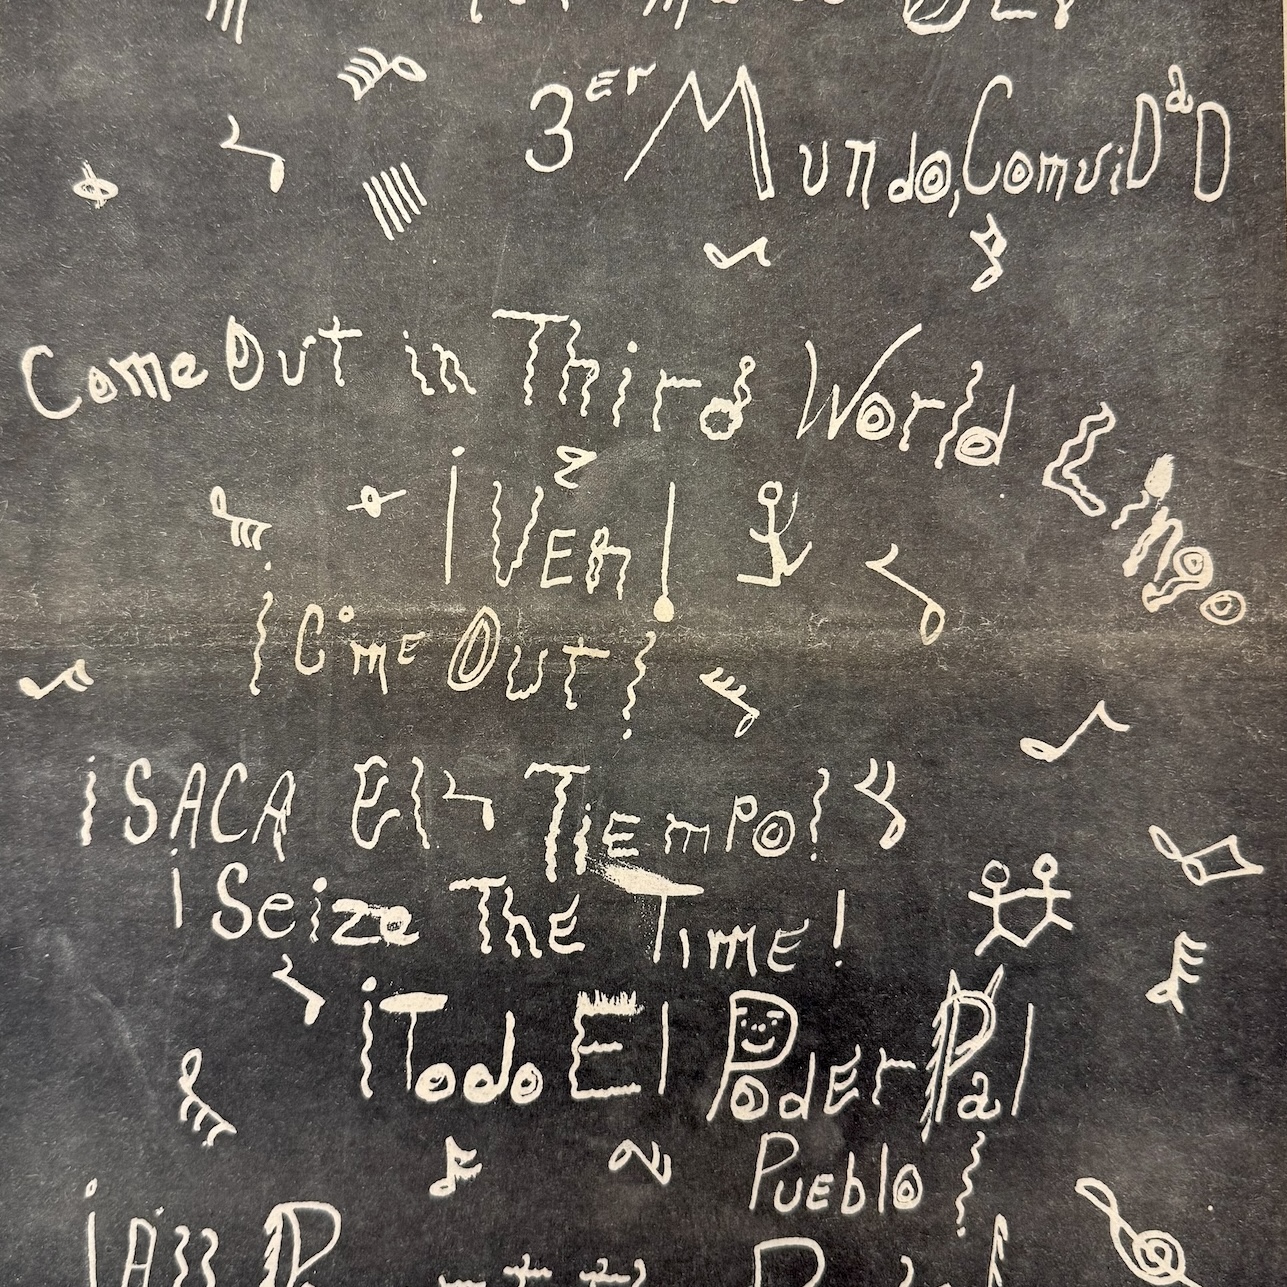 3er Mundo, ComuniDaD
Come Out in Third World Lingo
¡VEN!
¡Come Out!
¡SACA El Tiempo!
¡Seize The Time!
¡Todo El Poder Pal
Pueblo!
¡All P